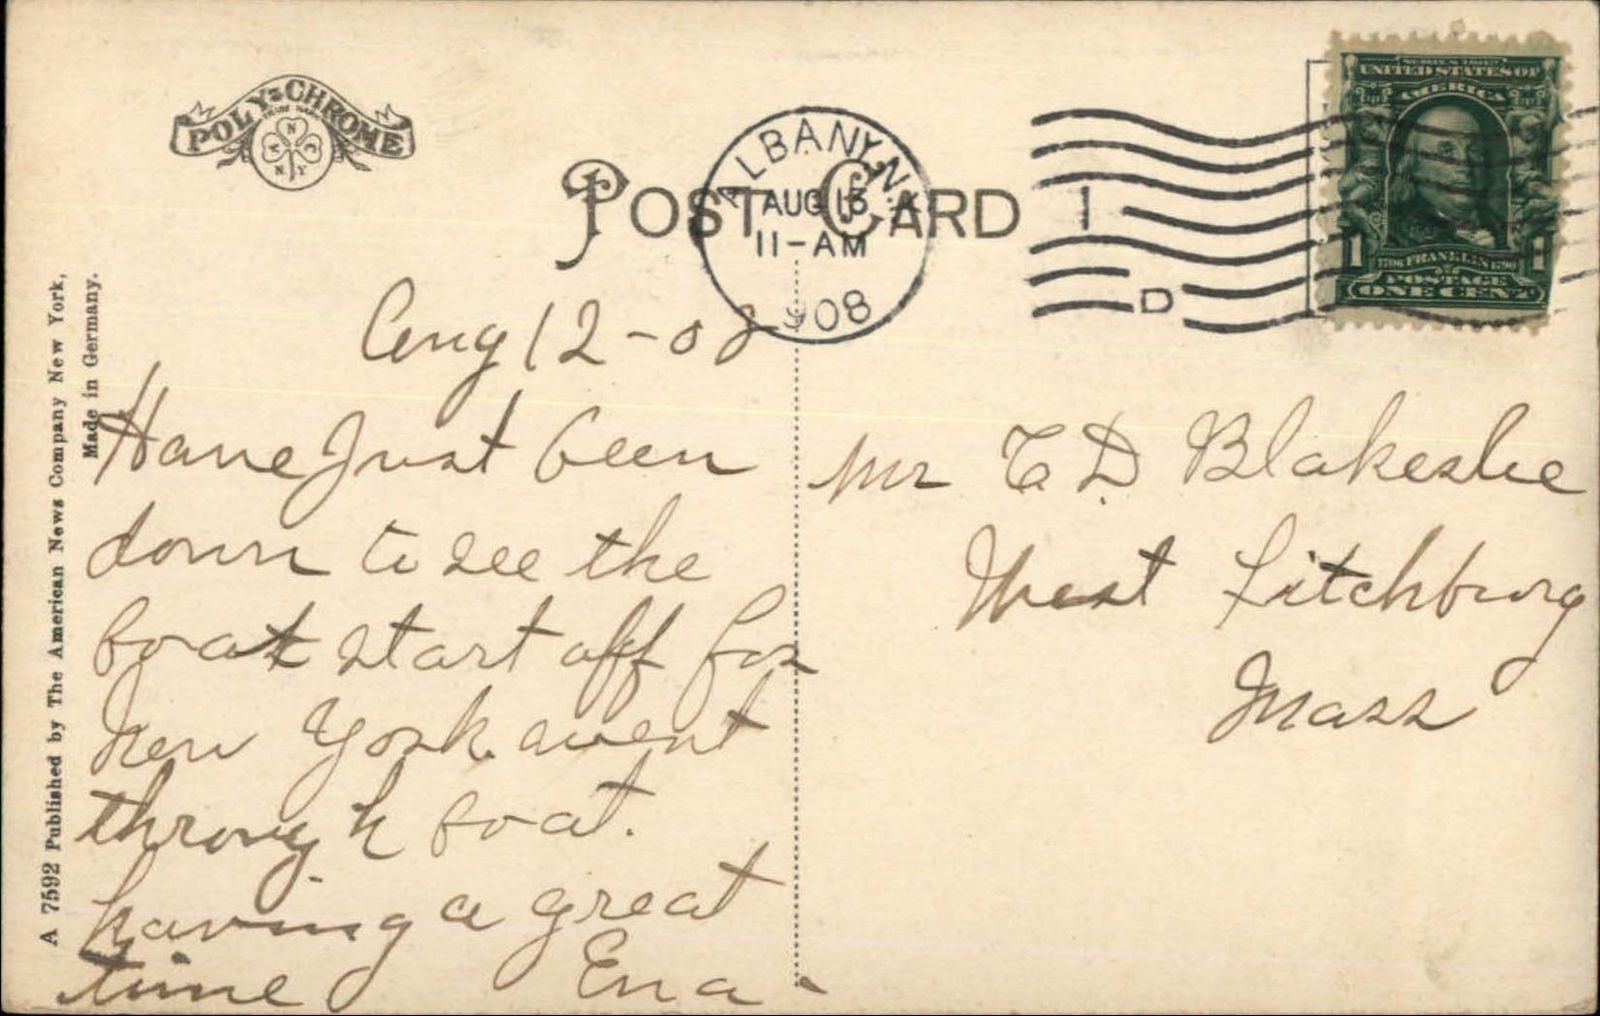 POLY-CHROME
TRADE MARK
A N C N Y
POST CARD
ALBANY, N.Y.
AUG 13
11-AM
1908
1
D
SERIES 1902
UNITED STATES OF
AMERICA
1706 FRANKLIN 1790
POSTAGE
1 1
ONE CENT
A 7592 Published by The American News Company New York,
Made in Germany.
Aug 12-08
Have Just been
down to see the
boat start off for
New York. went
through boat.
having a great
time Ena.
Mr C. D. Blakeslee
West Fitchburg
Mass